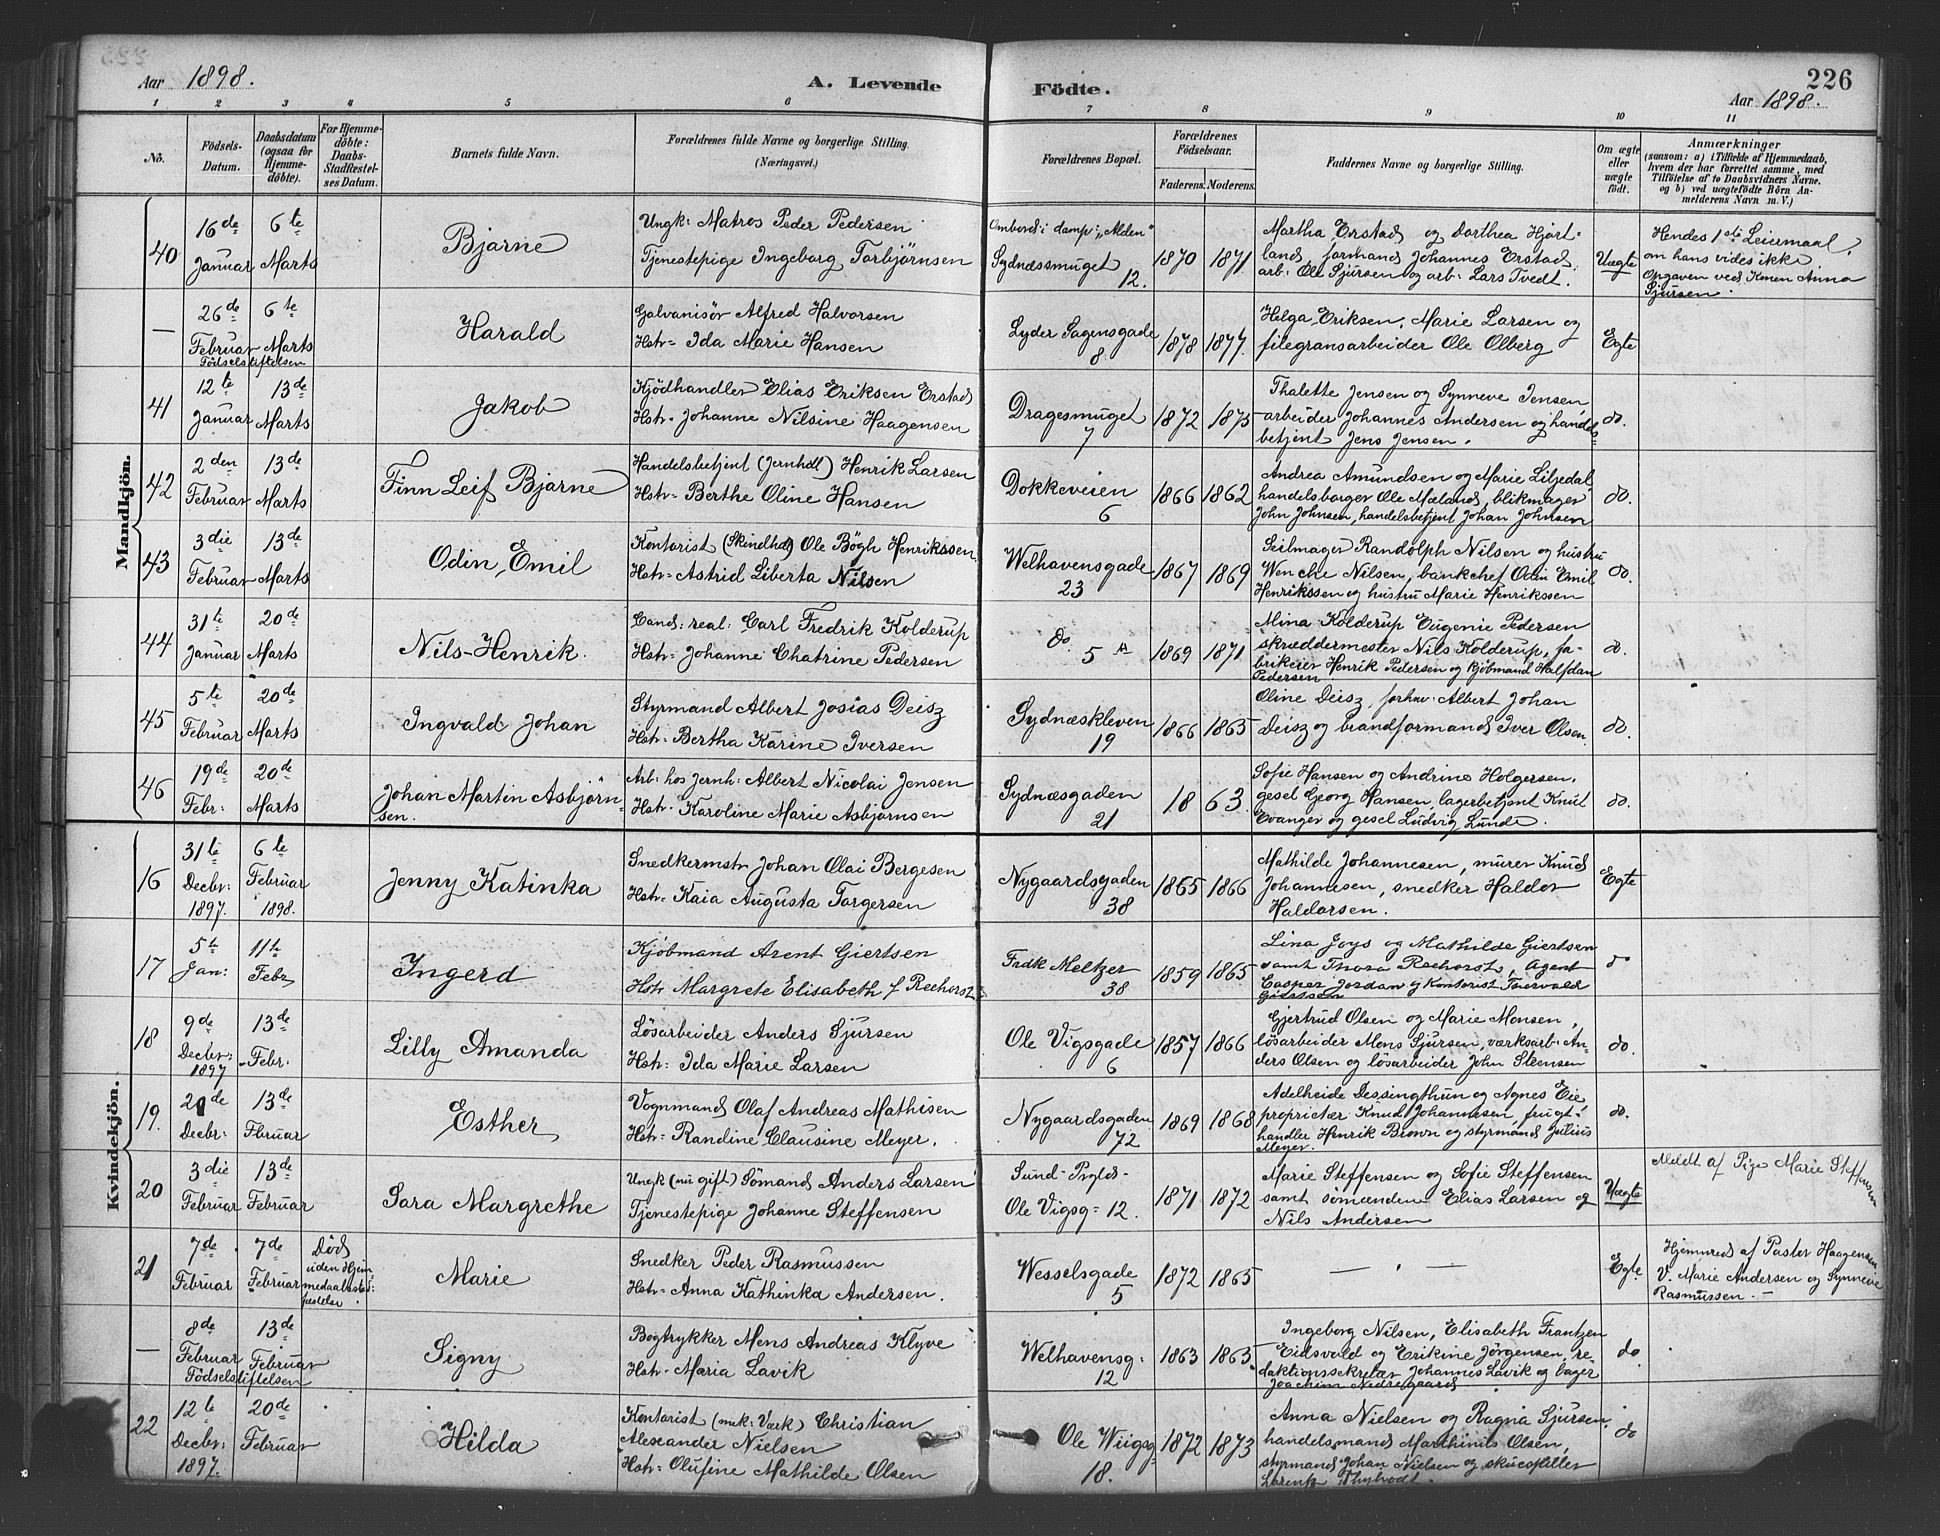 Aar 1898.
A. Levende
Födte.
226
Aar 1898.
1 2 3 4 5 6 7 8 9 10 11
No.
Födsels-Datum.
Daabsdatum (ogsaa for Hjemme-döbte).
For Hjemme-döbte: Daabs-Stadfæstel-ses Datum.
Barnets fulde Navn.
Forældrenes fulde Navne og borgerlige Stilling. (Næringsvei.)
Forældrenes Bopæl.
Forældrenes Födselsaar.
Faderens. Moderens.
Faddernes Navne og borgerlige Stilling.
Om ægte eller uægte födt.
Anmærkninger
(saasom: a) i Tilfælde af Hjemmedaab, hvem der har forrettet samme, med Tilföielse af to Daabsvidners Navne, og b) ved uægtefödte Börn An-melderens Navn m. V.)
Mandkjön.
40
16de Januar
6te Marts
Bjarne
Ungk: Matros Peder Pedersen
Tjenestepige Ingeborg Torbjörnsen
Ombord i damp: "Alden"
Sydnæssmuget 12.
1870 1871
Martha Erstad og Dorthea Hjort-
land, formand Johannes Erstad,
arb: Ole Sjursen og arb: Lars Tvedt.
Uægte
Hendes 1ste Leiermaal,
om hans vides ikke
Opgaven ved Konen Anna
Sjursen.
—
26de Februar
6te Marts
Födselstiftelsen
Harald
Galvanisör Alfred Halvorsen
Hstr: Ida Marie Hansen
Lyder Sagensgade 8
1878 1877.
Helga Eriksen, Marie Larsen og
filegransarbeider Ole Olberg
Egte
41
12te Januar
13de Marts
Jakob
Kjödhandler Elias Eriksen Erstad
Hstr: Johanne Nilsine Haagensen
Dragesmuget 7
1872 1875
Thalette Jensen og Synneve Jensen
arbeider Johannes Andersen og handels
betjent Jens Jensen.
do.
42
2den Februar
13de Marts
Finn Leif Bjarne
Handelsbetjent (Jernhdl) Henrik Larsen
Hstr: Berthe Oline Hansen
Dokkeveien 6
1866 1862
Andrea Amundsen og Marie Liljedal
handelsborger Ole Mæland, blikmager
John Johnsen, handelsbetjent Johan Johnsen
do.
43
3die Februar
13de Marts
Odin Emil
Kontorist (Skindhdl) Ole Bögh Henrikssen
Hstr: Astrid Liberta Nilsen
Welhavensgade 23
1867 1869
Seilmager Randolph Nilsen og hustru
Wenche Nilsen, bankchef Odin Emil
Henrikssen og hustru Marie Henrikssen
do.
44
31te Januar
20de Marts
Nils-Henrik.
Cand: real: Carl Fredrik Kolderup
Hstr: Johanne Chatrine Pedersen
do. 5 A
1869 1871
Mina Kolderup Eugenie Pedersen
skræddermester Nils Kolderup, fa-
brikeier Henrik Pedersen og kjöbmand Halfdan
Pedersen
do.
45
5te Februar
20de Marts
Ingvald Johan
Styrmand Albert Josias Deisz
Hstr: Bertha Karine Iversen
Sydnæskleven 19
1866 1865
Oline Deisz, Albert Johan
Deisz og brandformand Iver Olsen.
do.
46
19de Febr:
20de Marts
Johan Martin Asbjörn-
sen.
Arb: hos Jernh: Albert Nicolai Jensen
Hstr: Karoline Marie Asbjörnsen
Sydnæsgaden 21
18 63.
Sofie Hansen og Andrine Holgersen,
gesel Georg Hansen, lagerbetjent Knut
Evanger og gesel Ludvig Lunde.
do.
Kvindekjön.
16
31te Decbr: 1897.
6te Februar 1898.
Jenny Katinka
Snedkermstr Johan Olai Bergesen
Hstr: Kaia Augusta Torgersen
Nygaardsgaden 38
1865 1866
Mathilde Johannesen, murer Knud
Johannesen, snedker Haldor
Haldorsen.
Egte
17
5te Jan:
11te Febr
Ingerd
Kjöbmand Arent Giertsen
Hstr Margrete Elisabeth f Reehorst
Fredk Meltzer 38
1859 1865
Lina Joys og Mathilde Giertsen
samt Thora Reehorst, Agent
Casper Jordan og Kontorist Thorvald
Giertsen
do
18
9de Decbr: 1897
13de Febr.
Lilly Amanda
Lösarbeider Anders Sjursen
Hstr: Ida Marie Larsen
Ole Vigsgade 6
1857 1866
Gjertrud Olsen og Marie Monsen,
lösarbeider Mons Sjursen, værksarb: An-
ders Olsen og lösarbeider John Steensen
do.
19.
Decbr:
13de Februar
Esther
Vognmand Olaf Andreas Mathisen
Hstr: Randine Clausine Meyer.
Nygaardsgaden 72
1869 1868
Adelheide Dessingthun og Agnes Eie
proprietær Knud Johannesen, frugt-
handler Henrik Brown og styrmand Julius
Meyer.
do.
20
3die Februar
13de Februar
Sara Margrethe
Ungk (nu gift) Sömand Anders Larsen
Tjenestepige Johanne Steffensen
Ole Vigsg: 12.
1871 1872
Marie Steffensen og Sofie Steffensen
samt sömændene Elias Larsen og
Nils Andersen
Uægte
Meldt af Pige Marie Steffensen
21
7de Februar
7de Februar
Död
uden Hjem
medaabsstad-
fæstelse.
Marie
Snedker Peder Rasmussen
Hstr: Anna Kathinka Andersen.
Wesselsgade 5
1872 1865
— " —
Egte
Hjemmed. af Pastor Haagensen
V. Marie Andersen og Synneve
Rasmussen. —
—
8de Februar
13de Februar
Födselstiftelsen
Signy
Bogtrykker Mons Andreas Klyve
Hstr: Maria Lavik
Welhavensg: 12
1863 1865
Ingeborg Nilsen, Elisabeth Frantzen
Eidsvold og Erikine Jörgensen, re-
daktionssekretær Johannes Lavik og bager
Joachim Nedregaard
do.
22
12te Decbr: 1897.
20de Februar
Hilda
Kontorist (mek: Værk) Christian
Alexander Nielsen
Hstr: Olufine Mathilde Olsen
Ole Wiigsg: 18.
1872 1873
Anna Nielsen og Ragna Sjursen,
handelsmand Marthinus Olsen,
styrmand Johan Nielsen og skuespiller
Lorentz Thyholdt.
do